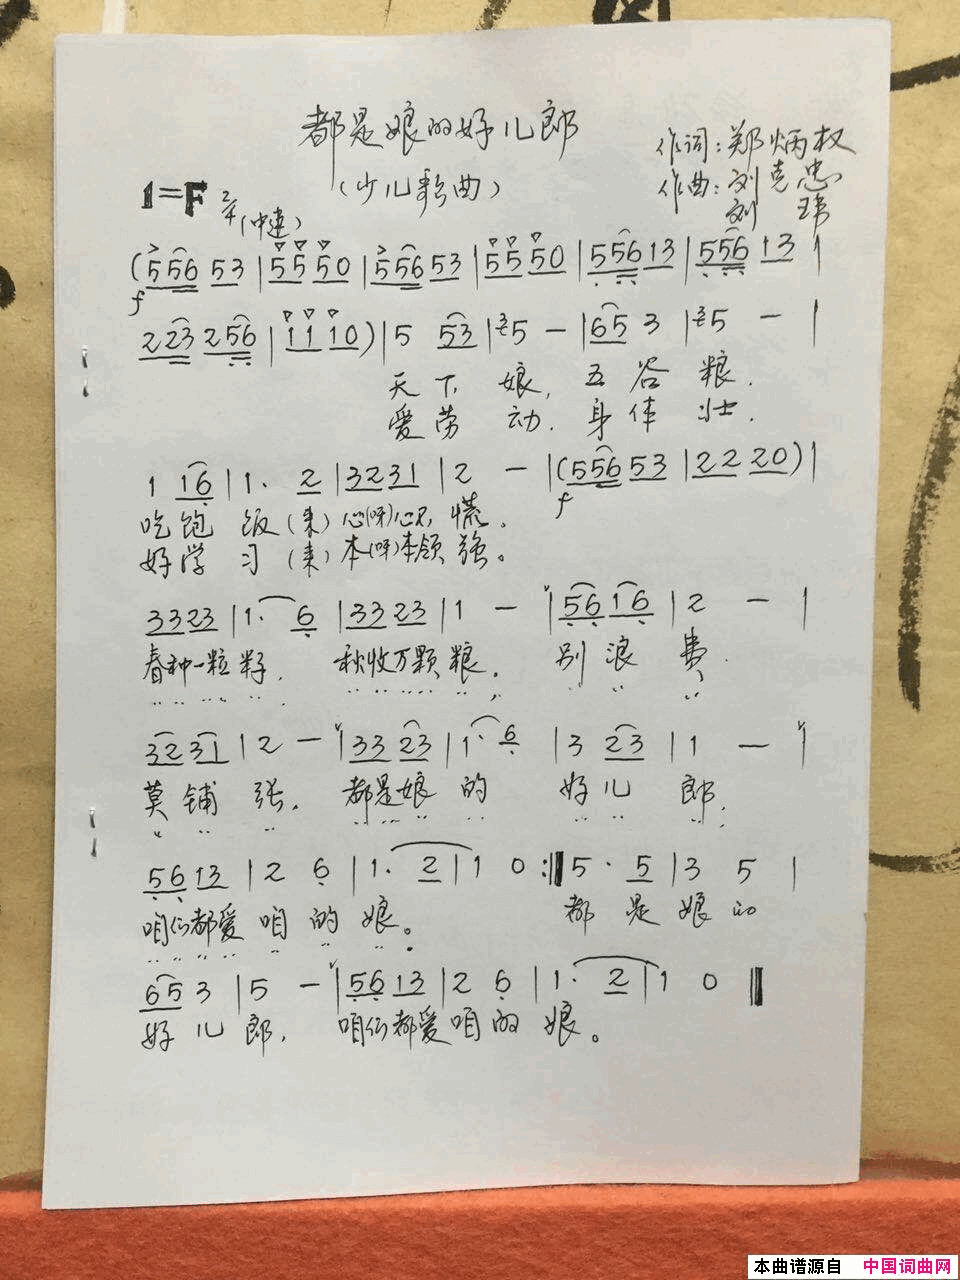 都是娘的好儿郎
(少儿歌曲)
作词:郑炳权
作曲:刘克忠
刘 玮
1=F 2/4 (中速)
(5 5 6 5 3 | 5 5 5 0 | 5 5 6 5 3 | 5 5 5 0 | 5 5 6 1 3 | 5 5 6 1 3 |
f
2 2 3 2 5 6 | 1 1 1 0) | 5 5 3 | 3 5 — | 6 5 3 | 3 5 — |
天下娘, 五谷粮.
爱劳动. 身体壮.
1 1 6 | 1. 2 | 3 2 3 1 | 2 — | (5 5 6 5 3 | 2 2 2 0) |
f
吃饱饭(来)心(呀)心不慌.
好学习(来)本(呀)本领强。
3 3 2 3 | 1. 6 | 3 3 2 3 | 1 — | 5 6 1 6 | 2 — |
春种一粒籽, 秋收万颗粮. 别浪费.
3 2 3 1 | 2 — | 3 3 2 3 | 1. 6 | 3 2 3 | 1 — |
莫铺张. 都是娘的好儿郎,
5 6 1 3 | 2 6 | 1. 2 | 1 0 :‖ 5. 5 | 3 5 |
咱们都爱咱的娘。 都是娘的
6 5 3 | 5 — | 5 6 1 3 | 2 6 | 1. 2 | 1 0 ‖
好儿郎, 咱们都爱咱的娘。
本曲谱源自 中国词曲网